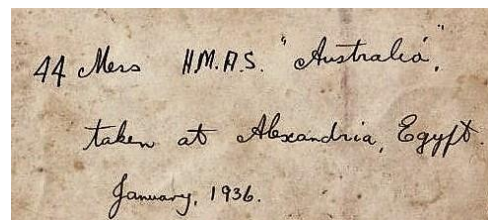 44 Mess H.M.A.S. "Australia",
taken at Alexandria, Egypt.
January, 1936.